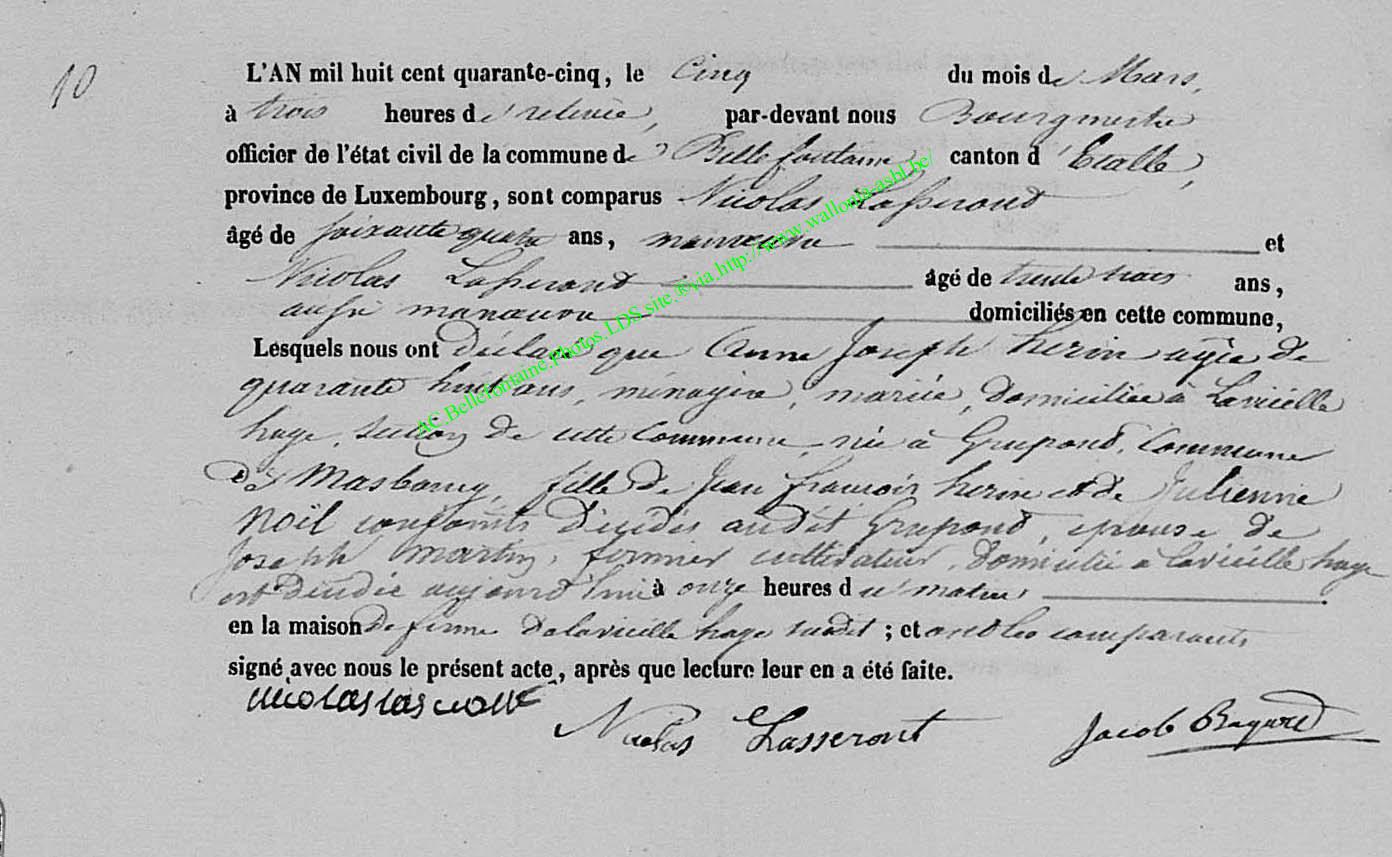 10
L'AN mil huit cent quarante-cinq, le Cinq du mois de Mars,
à trois heures de relevée, par-devant nous Bourgmestre
officier de l'état civil de la commune de Bellefontaine, canton d'Etalle,
province de Luxembourg, sont comparus Nicolas Lasserond
âgé de soixante quatre ans, manoeuvre et
Nicolas Lasserond âgé de trente trois ans,
aussi manoeuvre domiciliés en cette commune,
Lesquels nous ont déclaré que Anne Joseph herin agée de
quarante huit ans, ménagère, mariée, domiciliée à Lavieille
hage, section de cette Commune, née à Grupond, Commune
de Masbourg, fille de Jean françois herin et de Julienne
Noël conjoints décédés audit Grupond, epouse de
Joseph Martin, fermier cultivateur, domicilié a lavieille hage
est décédée aujourd'hui à onze heures du matin,
en la maison de ferme de lavieille hage susdit ; et ont les comparants
signé avec nous le présent acte, après que lecture leur en a été faite.
nicolas
Nicolas Lasseront
Jacob Bayard
AC.Bellefontaine.Photos.LDS site.®via.http://www.wallonia-asbl.be/